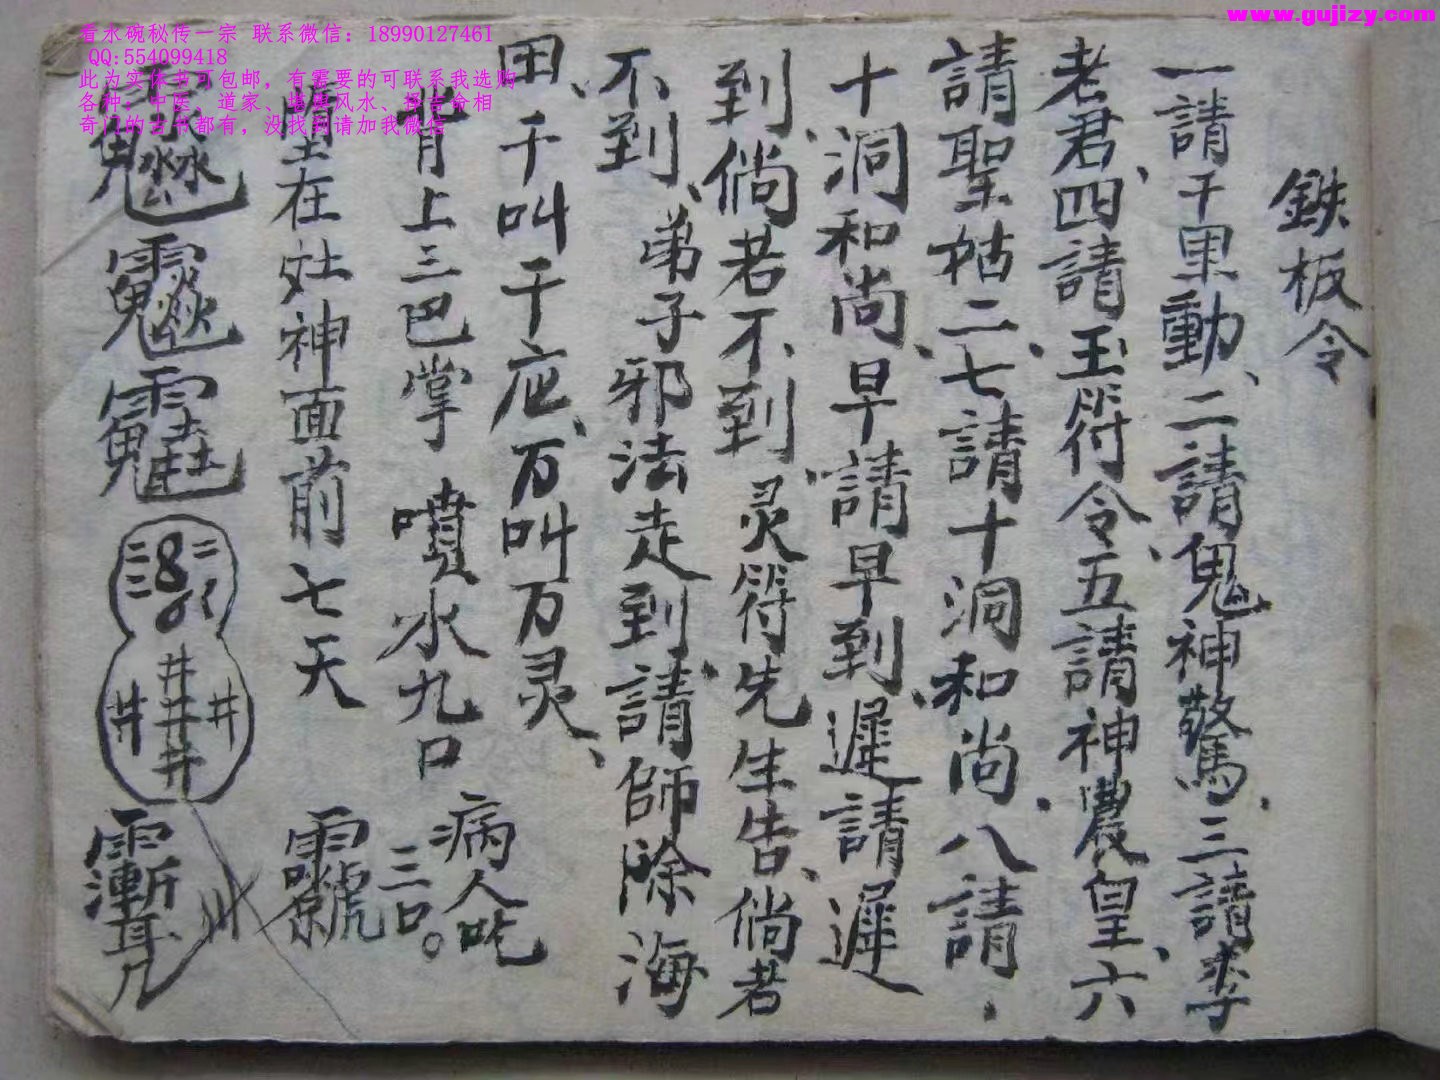 看水碗秘传一宗 联系微信：18990127461
QQ:554099418
此为实体书可包邮，有需要的可联系我选购
各种，中医、道家、堪舆风水、择吉命相
奇门的古书都有，没找到请加我微信
www.gujizy.com
鉄板令
一請千里動、二請鬼神驚、三請李
老君、四請玉符令、五請神農皇、六
請聖姑二、七請十洞和尚、八請
十洞和尚、早請早到、遲請遲
到、倘若不到、灵符先生告、倘若
不到、弟子邪法走到、請師除海
田、千叫千应、万叫万灵、
背上三巴掌 噴水九口 病人吃
三口。
在灶神面前七天